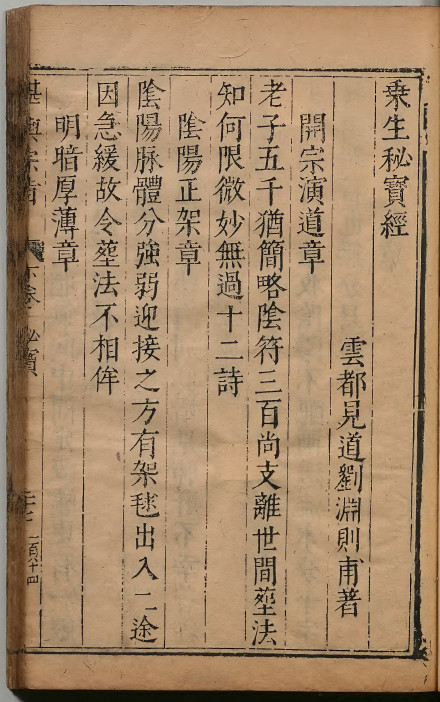 乗生秘寶經
雲都見道劉淵則甫著
開宗演道章
老子五千猶簡略陰符三百尚支離世間塟法
知何限微妙無過十二詩
陰陽正架章
陰陽脉體分強弱迎接之方有架毬出入二途
因急緩故令塟法不相侔
明暗厚薄章
堪輿宗旨 下卷 秘寶 一百六十四